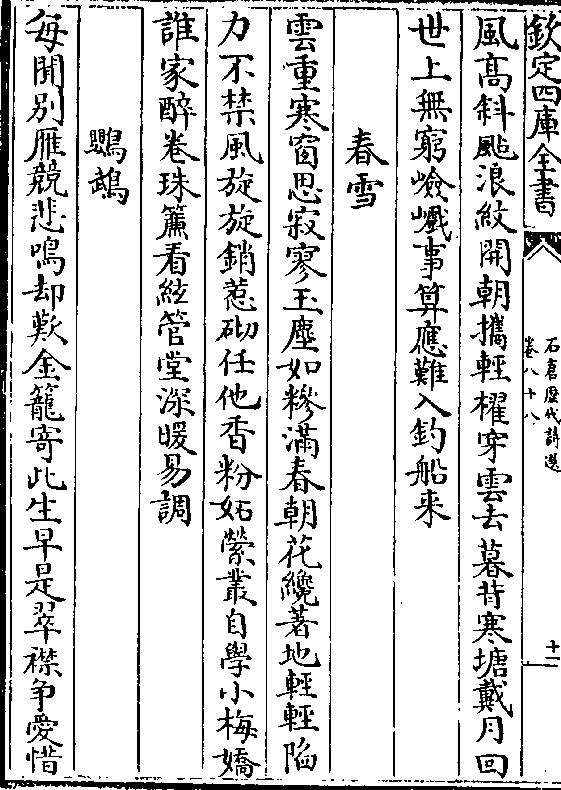 欽定四庫全書
石倉歷代詩選
卷八十八
十一
風髙斜颭浪紋開朝攜輕櫂穿雲去暮背寒塘戴月回
世上無窮嶮巇事算應難入釣船来
春雪
雲重寒窗思寂寥玉塵如糝滿春朝花纔著地輕輕陷
力不禁風旋旋銷惹砌任他香粉妬縈叢自學小梅嬌
誰家醉卷珠簾看絃管堂深暖易調
鸚鵡
每聞别雁競悲鳴却歎金籠寄此生早是翠襟争愛惜